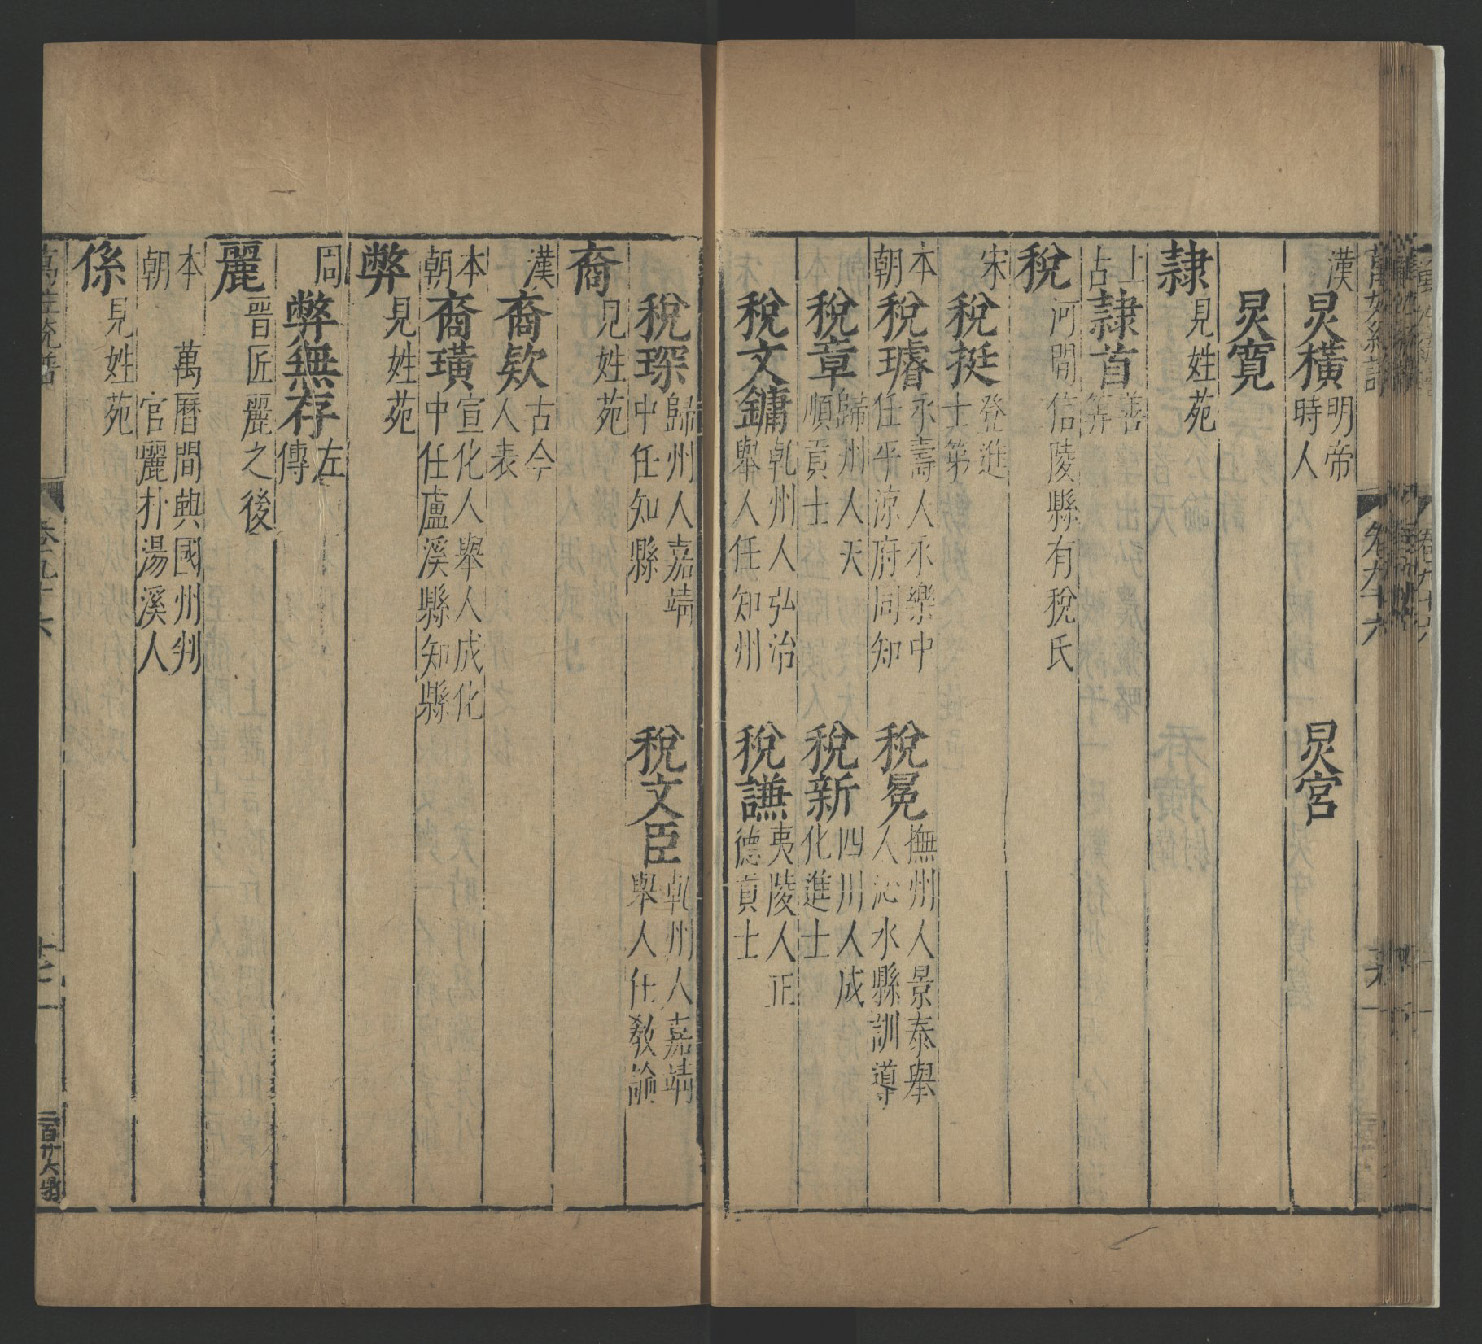 漢 炅橫 明帝時人 炅宮
炅寬
隷 見姓苑
上古 隷首 善筭
稅 河間信陵縣有稅氏
宋 稅挺 登進士第
本朝 稅璿 永壽人永樂中任平涼府同知 稅冕 撫州人景泰舉人沁水縣訓導
稅章 歸州人天順貢士 稅新 四川人成化進士
稅文鏞 乾州人弘治舉人任知州 稅謙 夷陵人正德貢士
稅琛 歸州人嘉靖中任知縣 稅文臣 乾州人嘉靖舉人任敎諭
裔 見姓苑
漢 裔欵 古今人表
本朝 裔璜 宣化人舉人成化中任盧溪縣知縣
弊 見姓苑
周 弊無存 左傳
麗 晋匠麗之後
本朝 萬曆間興國州判官麗朴湯溪人
係 見姓苑
萬姓統譜 卷九十六